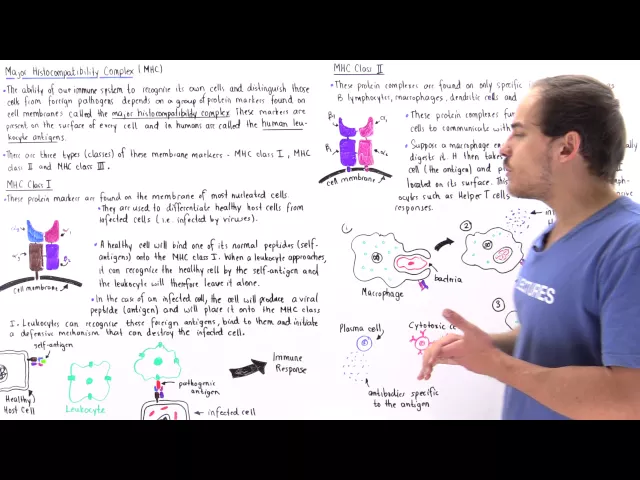 Major Histocompatibility Complex (MHC)
• The ability of our immune system to recognize its own cells and distinguish these
cells from foreign pathogens depends on a group of protein markers found on
cell membranes called the major histocompatibility complex. These markers are
present on the surface of every cell and in humans are called the human leu-
kocyte antigens.
• There are three types (classes) of these membrane markers - MHC class I, MHC
class II and MHC class III.
MHC Class I
• These protein markers are found on the membrane of most nucleated cells.
• They are used to differentiate healthy host cells from
infected cells (i.e. infected by viruses).
• A healthy cell will bind one of its normal peptides (self-
antigens) onto the MHC class I. When a leukocyte approaches,
it can recognize the healthy cell by the self-antigen and
the leukocyte will therefore leave it alone.
cell membrane
• In the case of an infected cell, the cell will produce a viral
peptide (antigen) and will place it onto the MHC class
I. Leukocytes can recognize these foreign antigens, bind to them and initiate
a defensive mechanism that can destroy the infected cell.
self-antigen
Healthy
Host Cell
Leukocyte
pathogenic
antigen
infected cell
Immune
Response
MHC Class II
• These protein complexes are found on only specific
B lymphocytes, macrophages, dendritic cells and
• These protein complexes
cells to communicate with
• Suppose a macrophage
digests it. It then takes
cell (the antigen) and
located on its surface. This
ocytes such as Helper T cells
responses.
cell membrane
1
2
3
Macrophage
bacteria
Plasma cell
Cytotoxic
antibodies specific
to the antigen
LECTURES